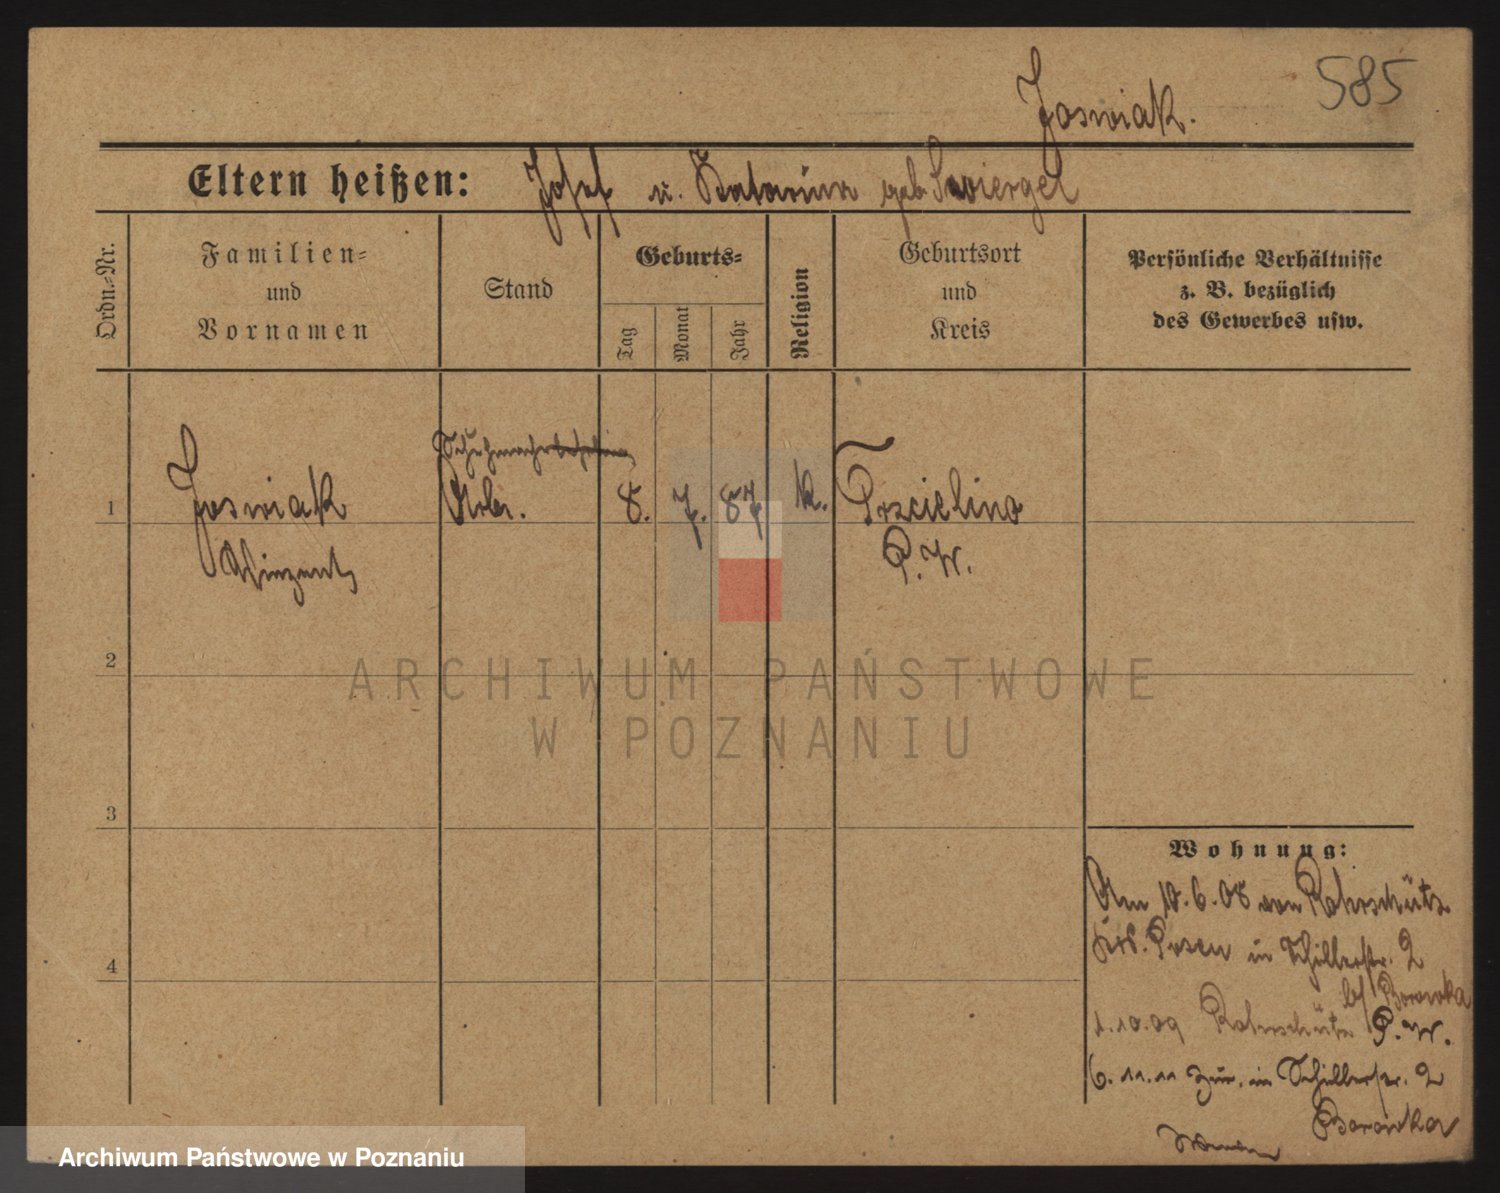 585
Joswiak.
Eltern heißen: Josef u. Katarina geb. Swiergel
Ordn.-Nr.
Familien-
und
Vornamen
Stand
Geburts-
Tag
Monat
Jahr
Religion
Geburtsort
und
Kreis
Persönliche Verhältnisse
z. B. bezüglich
des Gewerbes usw.
Schuhmacherlehrling
1 Joswiak Arb. 8. 7. 87 k. Trzcielino
Winzent P. W.
2
3
4
ARCHIWUM PAŃSTWOWE
W POZNANIU
Wohnung:
Am 10.6.08 von Rohrschütz
Krs. Posen in Schillerstr. 2
b/ Borowka
1.10.09 Rohrschütz P. W.
6.11.11 zur. in Schillerstr. 2
Borowka
Wenden
Archiwum Państwowe w Poznaniu